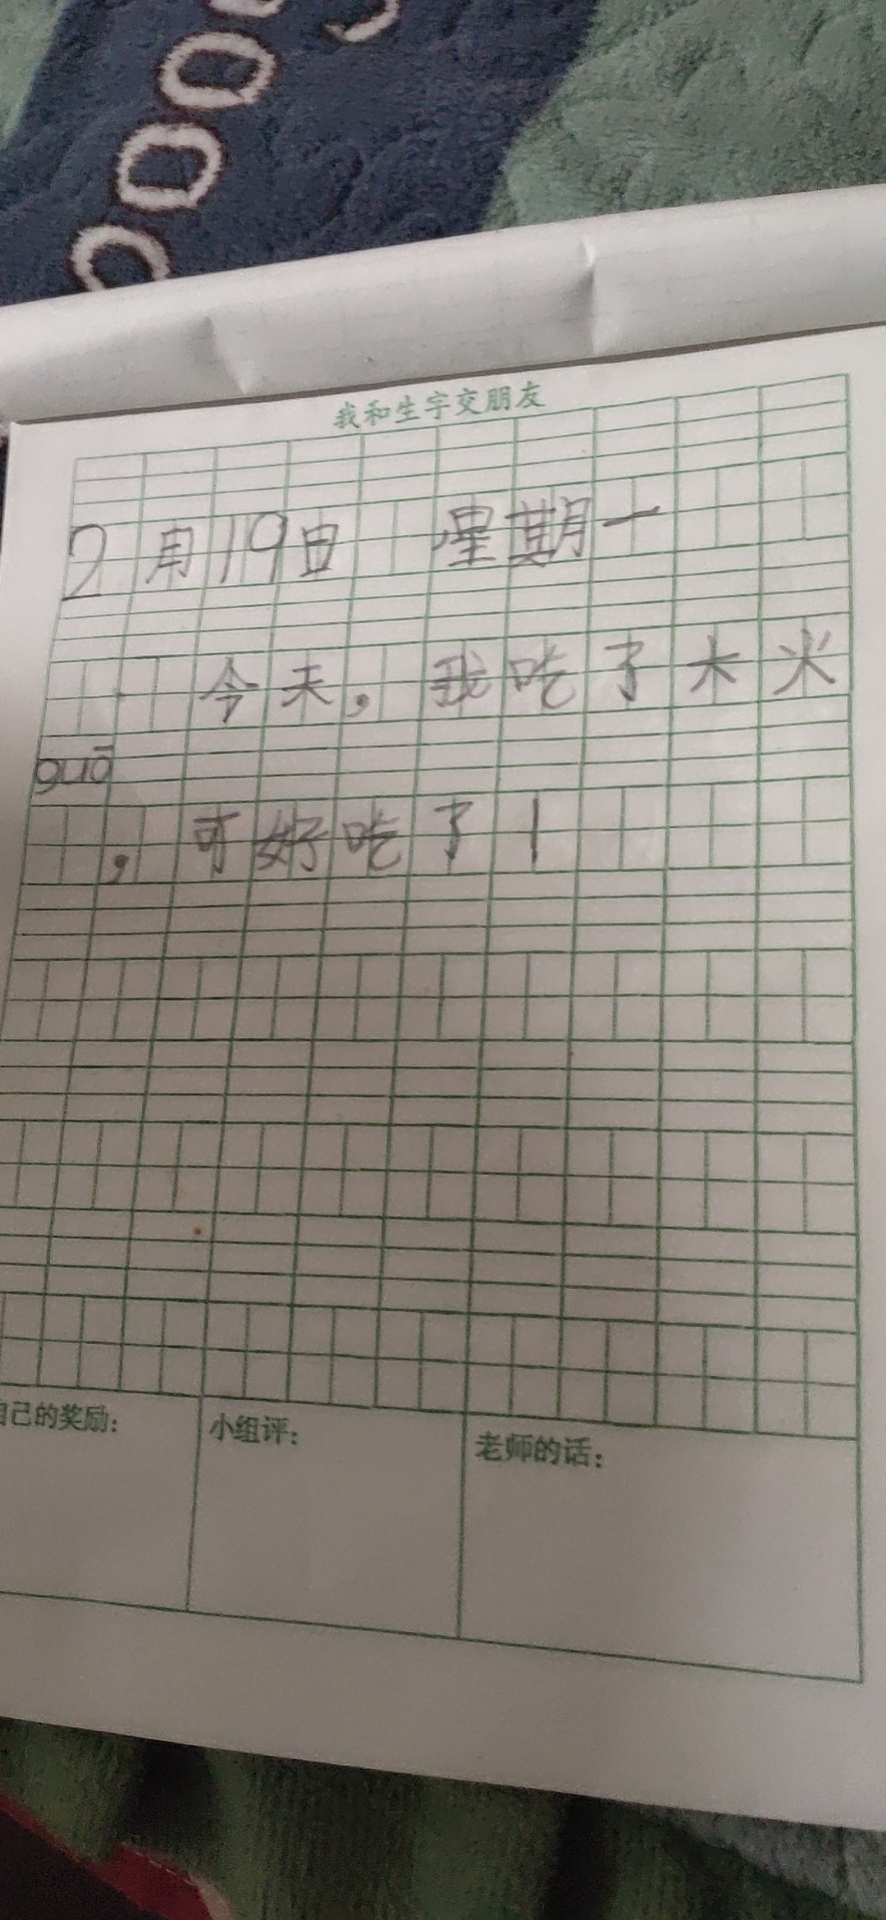 我和生字交朋友
2月19日 星期一
今天，我吃了大火
guō
，可好吃了！
自己的奖励：
小组评：
老师的话：